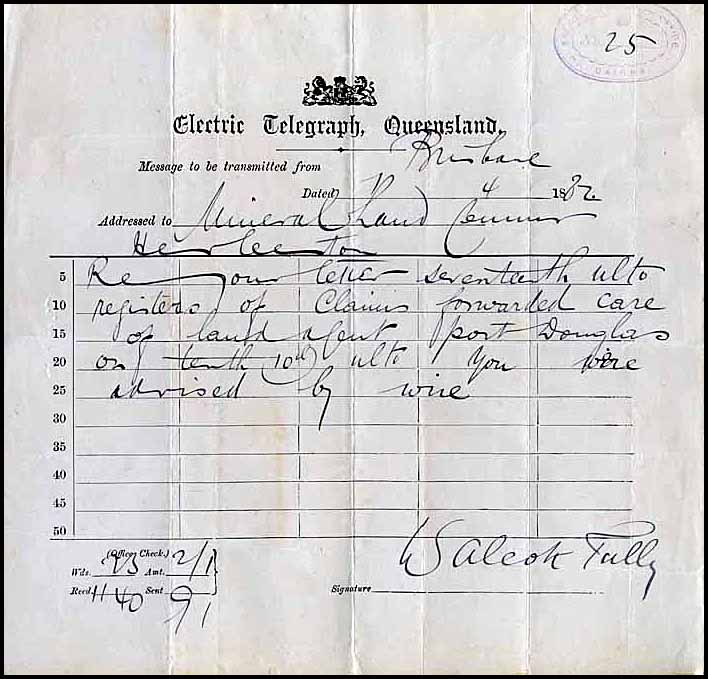 25
CAIRNS
Electric Telegraph, Queensland.
Message to be transmitted from Brisbane
Dated 4 1882
Addressed to Mineral Land Commr
Herberton
5 Re your letter seventeenth ulto
10 registers of Claims forwarded care
15 of land agent port Douglas
20 on tenth 10th ulto You were
25 advised by wire
30
35
40
45
50
(Office Check.)
Wds. 25 Amt. 2/1
Recd 11 40 Sent 9 1
Walcok Tully
Signature